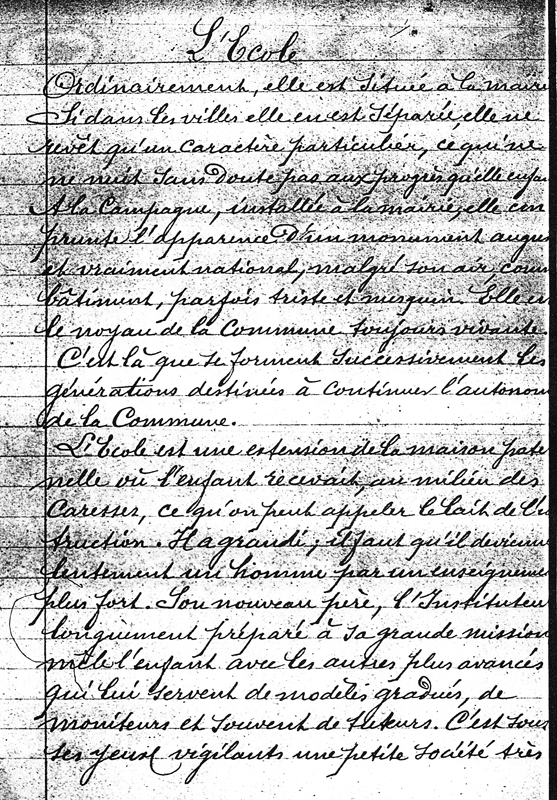 L'Ecole
Ordinairement, elle est située à la mairie
Si dans les villes elle en est séparée, elle ne
revêt qu'un caractère particulier, ce qui ne
ne nuit sans doute pas aux progrès qu'elle enfan
A la Campagne, installée à la mairie, elle em
prunte l'apparence d'un monument augus
et vraiment national, malgré son air, comm
bâtiment, parfois triste et mesquin. Elle es
le noyau de la Commune toujours vivante.
C'est là que se forment successivement les
générations destinées à continuer l'autonom
de la Commune.
L'Ecole est une extension de la maison pater
nelle où l'enfant recevait, au milieu des
Caresses, ce qu'on peut appeler le lait de l'ins
truction. Il a grandi ; il faut qu'il devienne
lentement un homme par un enseigneme
plus fort. Son nouveau père, l'Instituteur
longuement préparé à sa grande mission
mêle l'enfant avec les autres plus avancés
qui lui servent de modèles gradués, de
moniteurs et souvent de tuteurs. C'est sous
ses yeux vigilants une petite société très